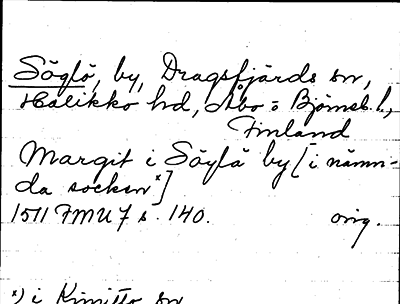 Söglö, by, Dragsfjärds sn,
Halikko hd, Åbo o Björneb. l.,
Finland
Margit i Söglå by [i nämn-
da socken*]
1511 FMU 7 s. 140. orig.
*) i Kimitto sn